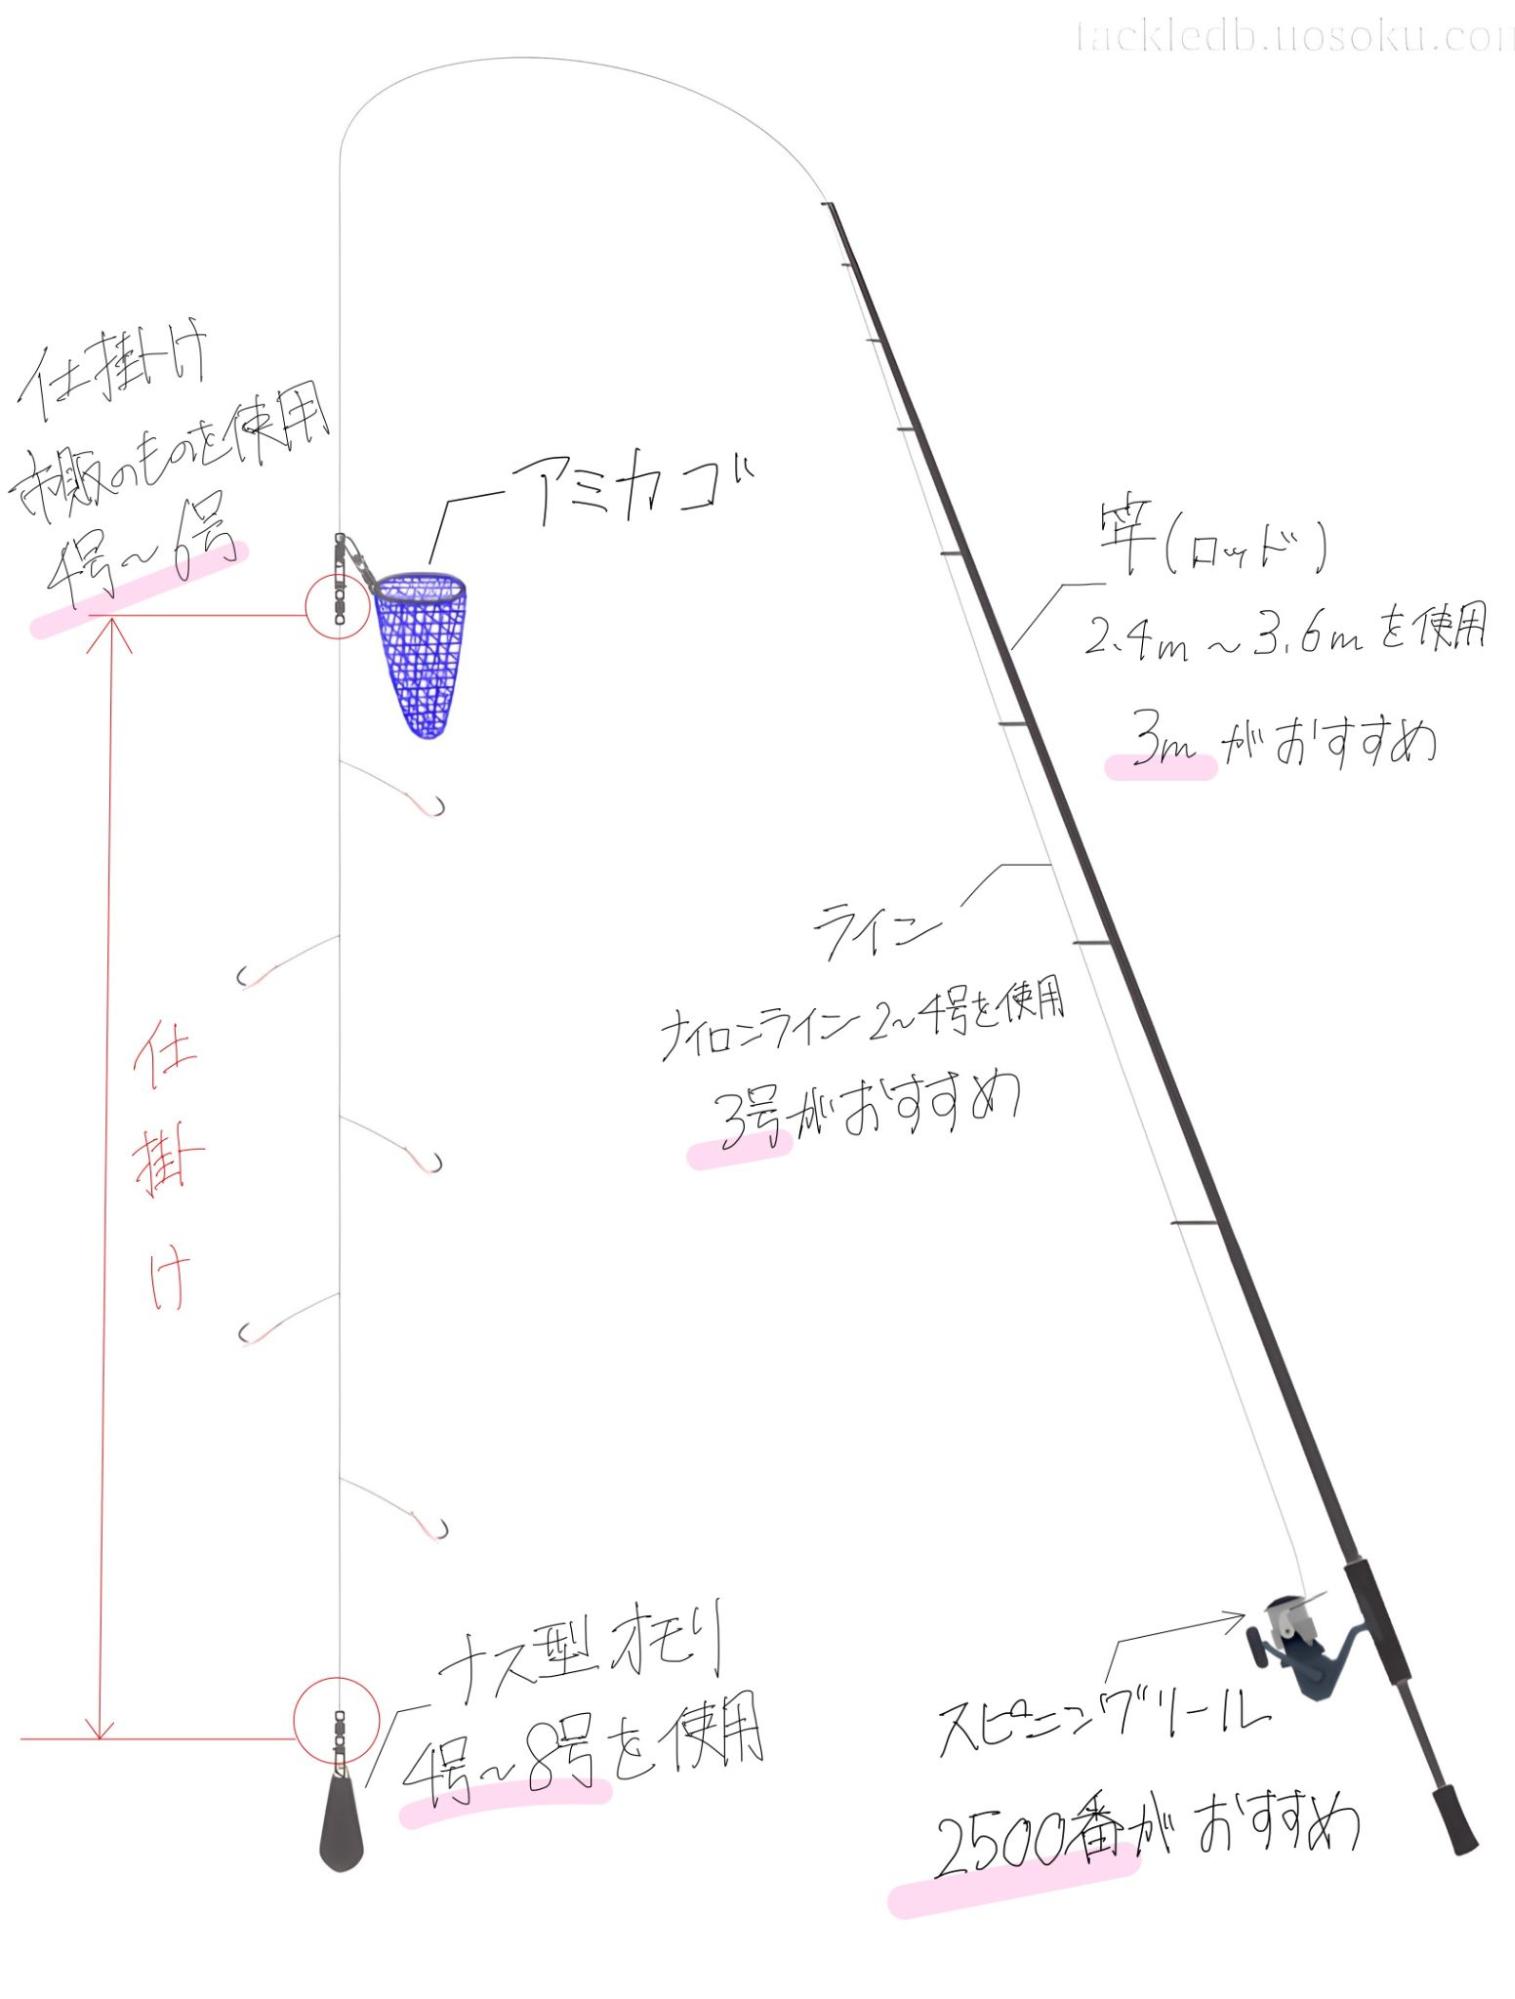 tackledb.uosoku.com
仕掛け
市販のものを使用
4号～6号
アミカゴ
竿(ロッド)
2.4m～3.6mを使用
3mがおすすめ
ライン
ナイロンライン2～4号を使用
3号がおすすめ
仕掛け
ナス型オモリ
4号～8号を使用
スピニングリール
2500番がおすすめ